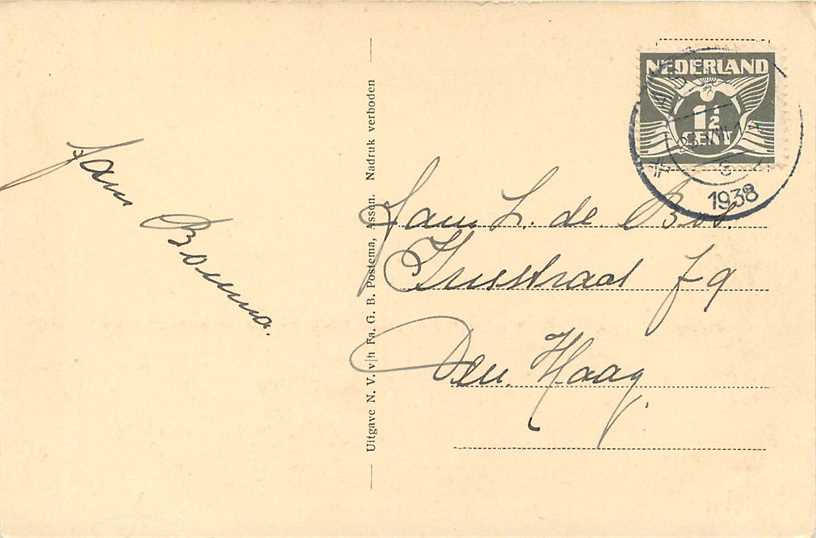 Jans Bouma.
Uitgave N. V. v/h Fa. G. B. Postema, Assen. Nadruk verboden
NEDERLAND
1½
CENT
1938
Fam L. de Bos.
79
Den Haag.